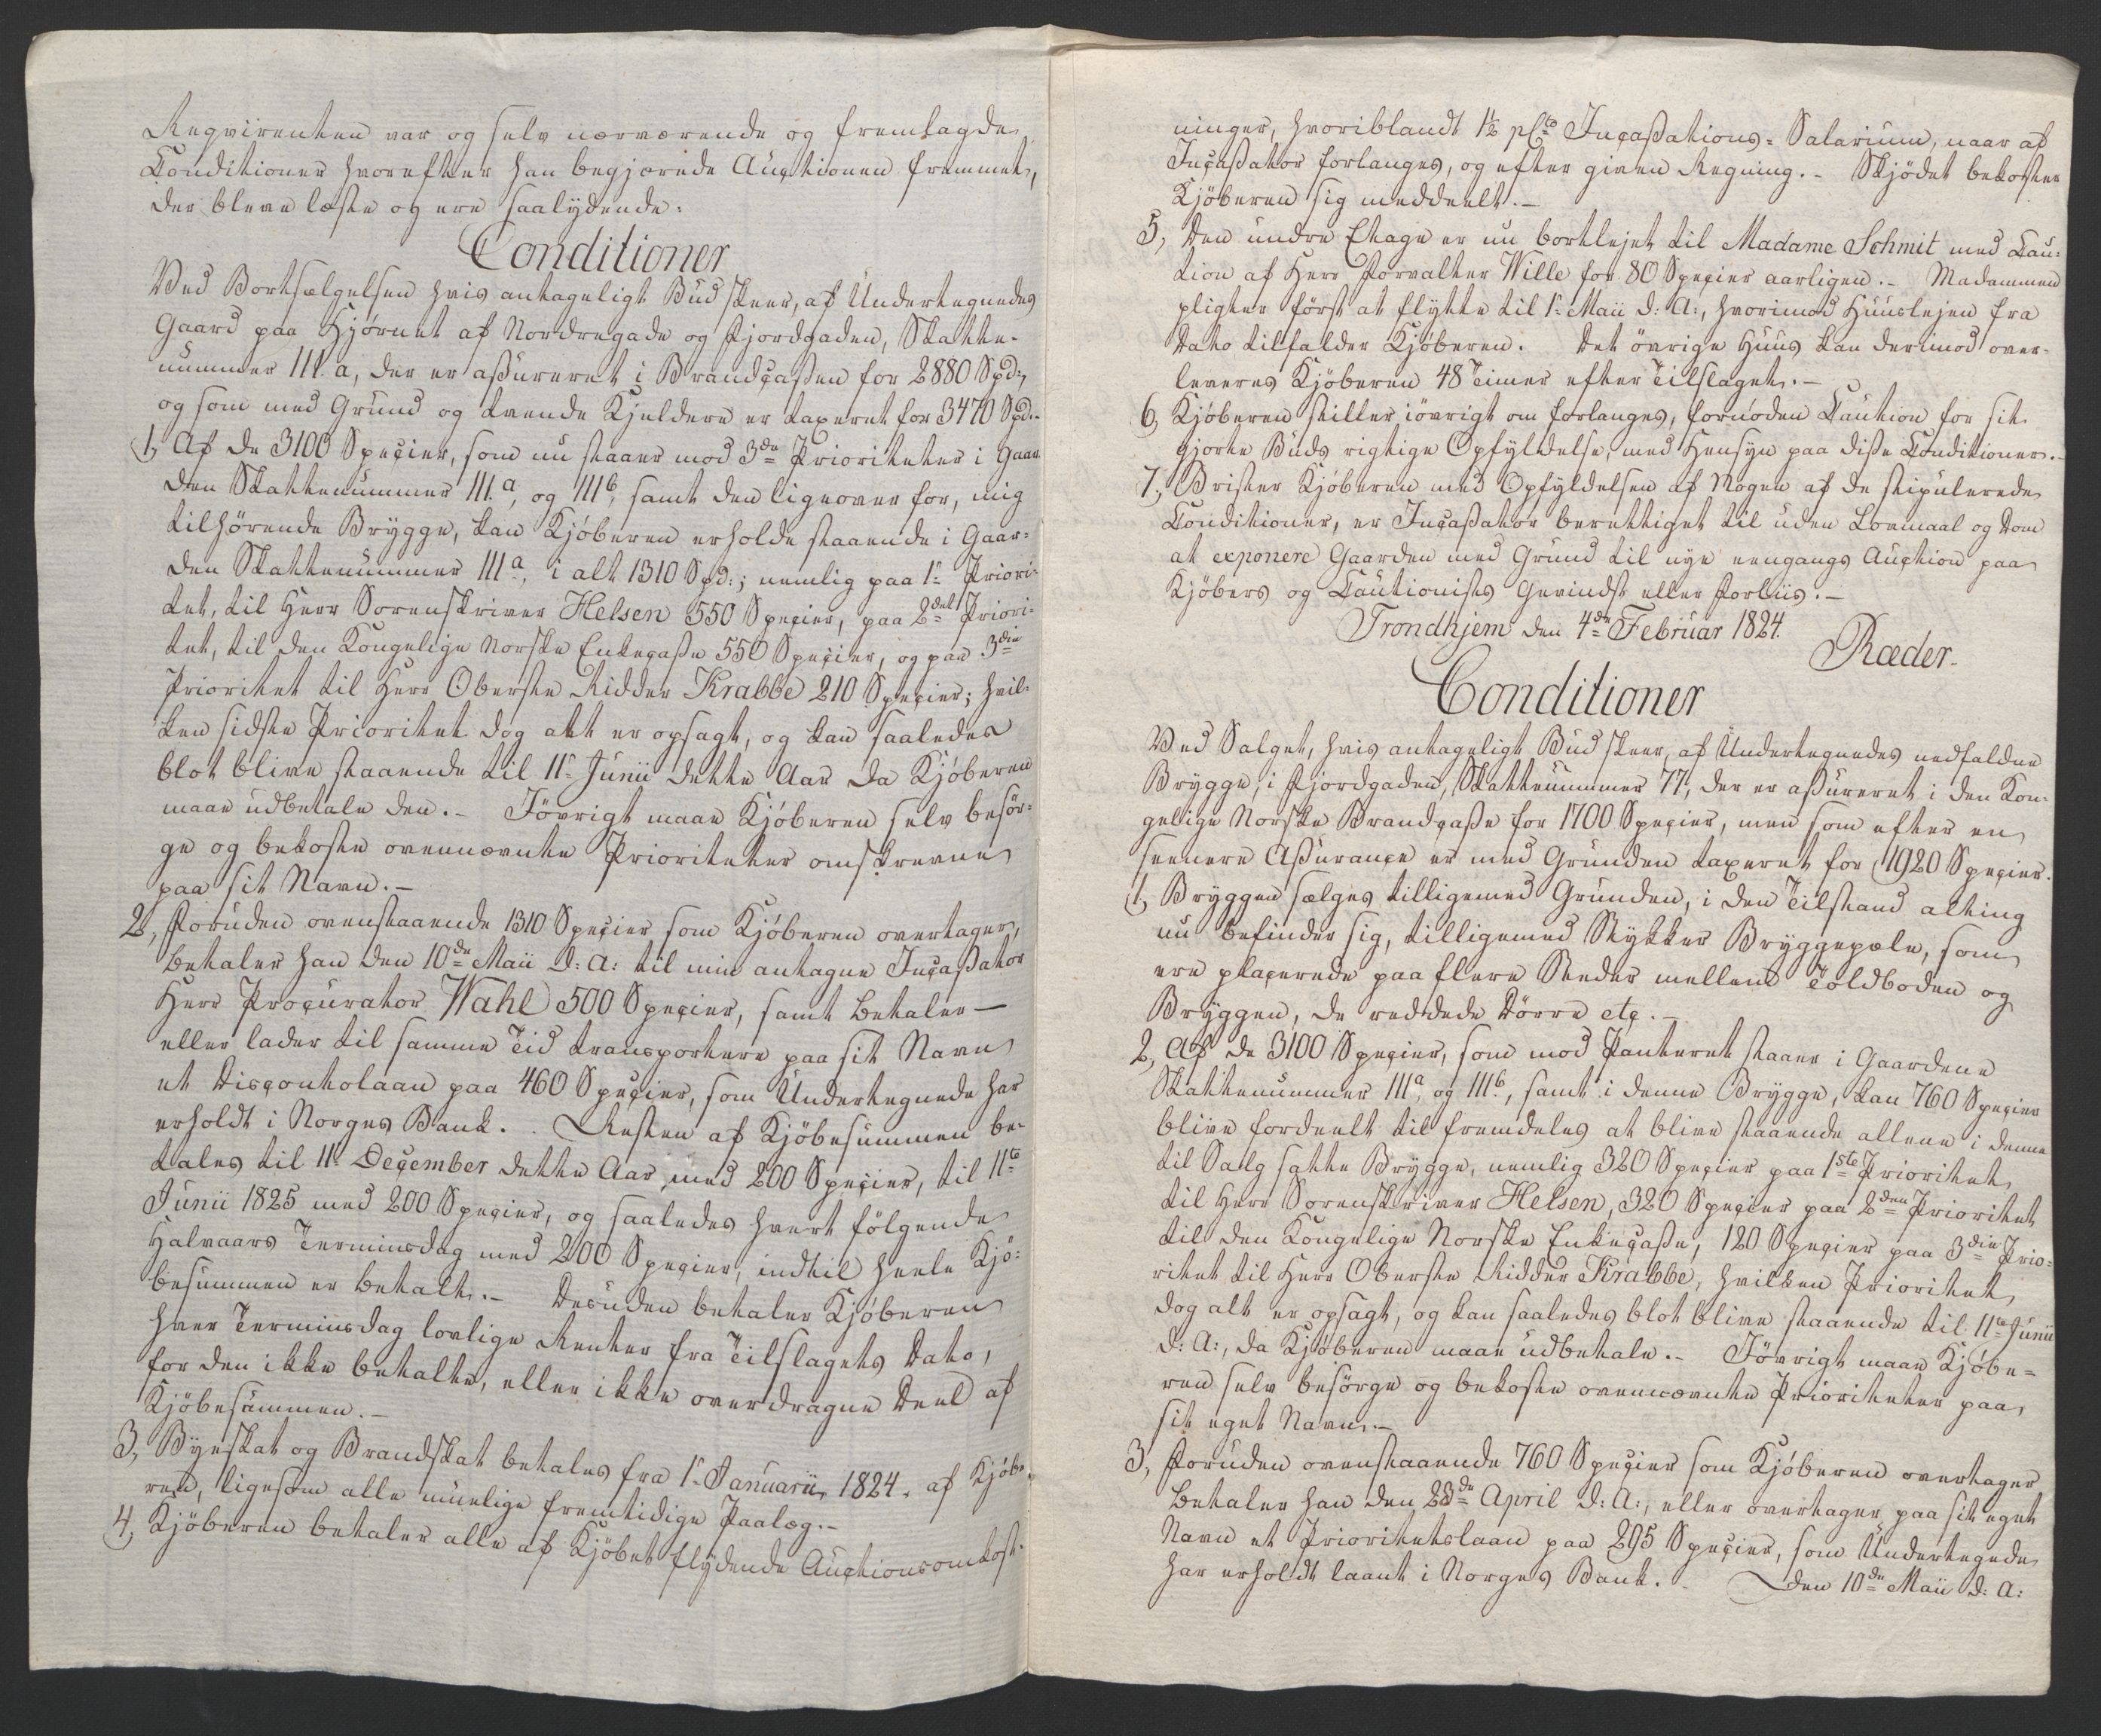 Reqvirenten var og selv nærværende og fremlagde
Conditioner hvorefter han begjærede Auctionen fremmet,
der bleve læste og ere saalydende:
Conditioner
Ved Bortsælgelsen hvis antageligt Bud skeer, af Undertegnedes
Gaard paa Hjørnet af Nordregade og Fjordgaden, Skatte-
nummer 111.a, der er assureret i Brandcassen for 2880 Spd:,
og som med Grund og tvende Kjeldere er taxeret for 3470 Spd:-
1, Af de 3100 Specier, som nu staaer mod 3de Prioriteter i Gaar-
den Skattenummer 111.a, og 111b, samt den ligeover for, mig
tilhørende Brygge, kan Kjøberen erholde staaende i Gaar-
den Skattenummer 111a, i alt 1310 Spd:; nemlig paa 1e Priori-
tet, til Herr Sorenskriver Helsen 550 Specier, paa 2det Priori-
tet, til den Kongelige Norske Enkecasse 550 Specier, og paa 3die
Prioritet til Herr Oberste Ridder Krabbe 210 Specier; hvil-
ken sidste Prioritet dog alt er opsagt, og kan saaledes
blot blive staaende til 11e Junii dette Aar da Kjøberen
maae udbetale den. - Iøvrigt maae Kjøberen selv besør-
ge og bekoste ovennævnte Prioriteter omskrevne
paa sit Navn. -
2, Foruden ovenstaaende 1310 Specier som Kjøberen overtager,
betaler han den 10de Maii d: A: til min antagne Incassator
Herr Procurator Wahl 500 Specier, samt betaler -
eller lader til samme Tid transportere paa sit Navn
et Discontolaan paa 460 Specier, som Undertegnede har
erholdt i Norges Bank. - Resten af Kjøbesummen be-
tales til 11e December dette Aar med 200 Specier, til 11te
Junii 1825 med 200 Specier, og saaledes hvert følgende
Halvaars Terminsdag med 200 Specier, indtil heele Kjø-
besummen er betalt. - Desuden betaler Kjøberen
hver Terminsdag lovlige Renter fra Tilslagets Dato,
for den ikke betalte, eller ikke overdragne Deel af
Kjøbesummen. -
3, Byeskat og Brandskat betales fra 1e Januarii 1824. af Kjøbe-
ren, ligesom alle muelige fremtidige Paalæg. -
4, Kjøberen betaler alle af Kjøbet flydende Auctionsomkost-
ninger, hvoriblandt 1½ pCto Incassations-Salarium, naar af
Incassator forlanges, og efter given Regning. - Skjødet bekoster
Kjøberen sig meddeelt. -
5, Den undre Etage er nu bortlejet til Madame Schmit med Cau-
tion af Herr Forvalter Wille for 80 Specier aarligen. - Madammen
pligter først at flytte til 1e Maii d: A:, hvorimod Huuslejen fra
Dato tilfalder Kjøberen. Det øvrige Huus kan derimod over-
leveres Kjøberen 48 Timer efter Tilslaget. -
6, Kjøberen stiller iøvrigt om forlanges, fornøden Caution for sit
gjorte Buds rigtige Opfyldelse, med Hensyn paa disse Conditioner. -
7, Brister Kjøberen med Opfyldelsen af Nogen af de stipulerede
Conditioner, er Incassator berettiget til uden Lovmaal og Dom
at exponere Gaarden med Grund til nye eengangs Auction paa
Kjøbers og Cautionists Gevindst eller Forliis. -
Trondhjem den 4de Februar 1824.
Ræder.
Conditioner
Ved Salget, hvis antageligt Bud skeer, af Undertegnedes nedfaldne
Brygge, i Fjordgaden, Skattenummer 77, der er assureret i den Kon-
gelige Norske Brandcasse for 1700 Specier, men som efter en
seenere Assurance er med Grunden taxeret for 1920 Specier.
1, Bryggen sælges tilligemed Grunden, i den Tilstand alting
nu befinder sig, tilligemed Stykker Bryggepæle, som
ere placerede paa flere Steder mellem Toldboden og
Bryggen, de reddede Dørre etc. -
2, Af de 3100 Specier, som mod Panteret staaer i Gaardene
Skattenummer 111a og 111b, samt i denne Brygge, kan 760 Specier
blive fordeelt til fremdeles at blive staaende allene i denne
til Salg satte Brygge, nemlig 320 Specier paa 1ste Prioritet
til Herr Sorenskriver Helsen, 320 Specier paa 2den Prioritet
til den Kongelige Norske Enkecasse, 120 Specier paa 3die Prio-
ritet til Herr Oberste Ridder Krabbe, hvilken Prioritet
dog alt er opsagt, og kan saaledes blot blive staaende til 11te Junii
d: A:, da Kjøberen maae udbetale. - Iøvrigt maae Kjøbe-
ren selv besørge og bekoste ovennævnte Prioriteter paa
sit eget Navn. -
3, Foruden ovenstaaende 760 Specier som Kjøberen overtager
betaler han den 28de April d: A:, eller overtager paa sit eget
Navn et Prioritetslaan paa 295 Specier, som Undertegnede
har erholdt laant i Norges Bank. - Den 10de Maii d: A: